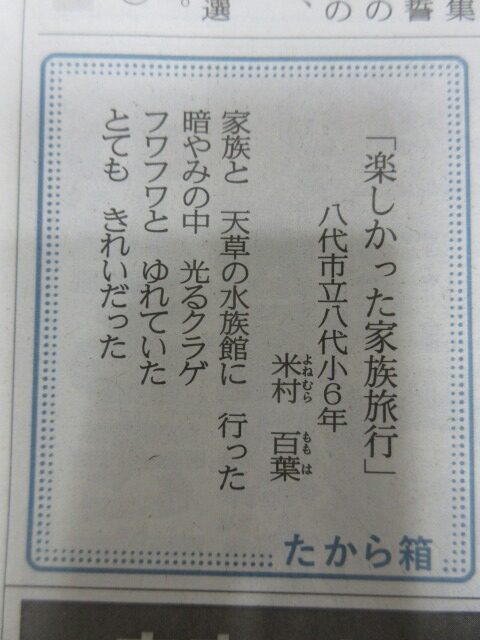 集
の誓
の
、
選
。
「楽しかった家族旅行」
八代市立八代小6年
米村 百葉
よねむら ももは
家族と 天草の水族館に 行った
暗やみの中 光るクラゲ
フワフワと ゆれていた
とても きれいだった
たから箱